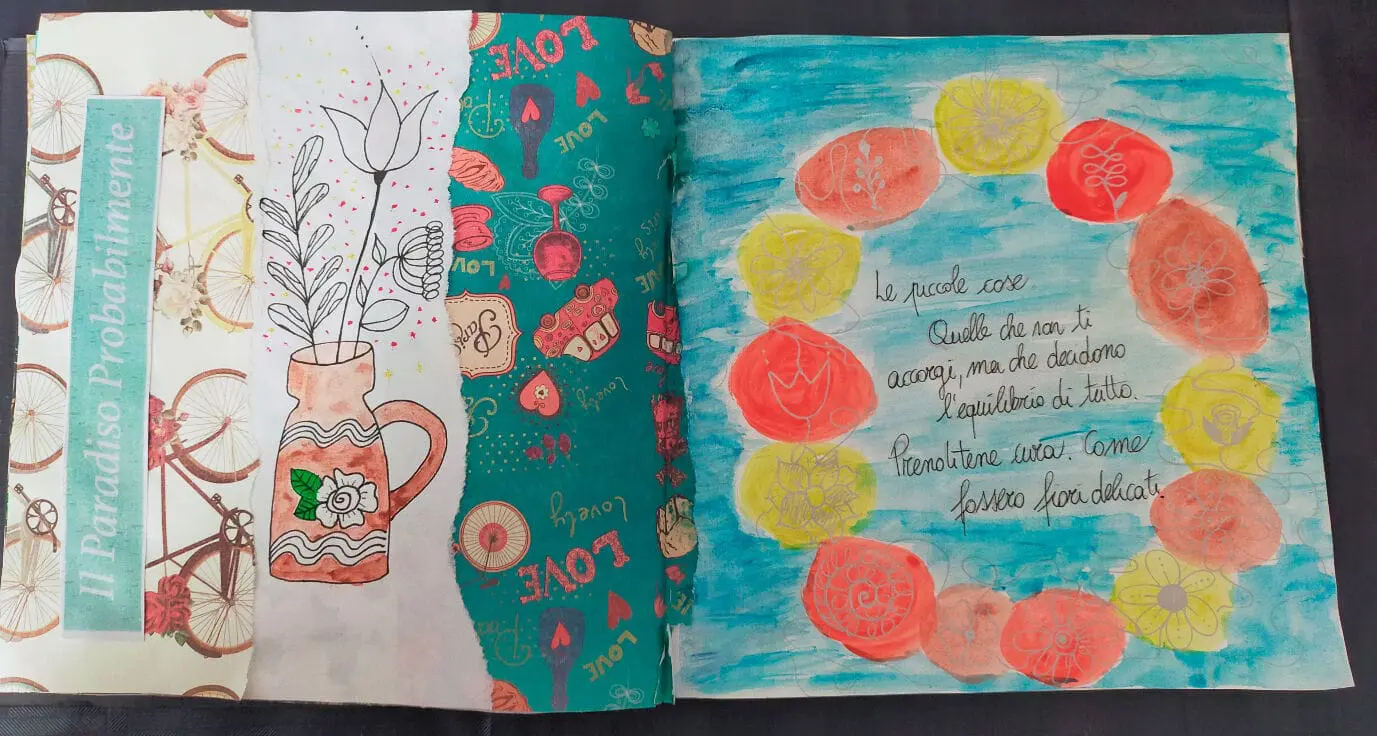 Il Paradiso Probabilmente
LOVE
LOVE
LOVE
Paris
Lovely
Lovely
LOVE
LOVE
Le piccole cose
Quelle che non ti
accorgi, ma che decidono
l'equilibrio di tutto.
Prenditene cura. Come
fossero fiori delicati.